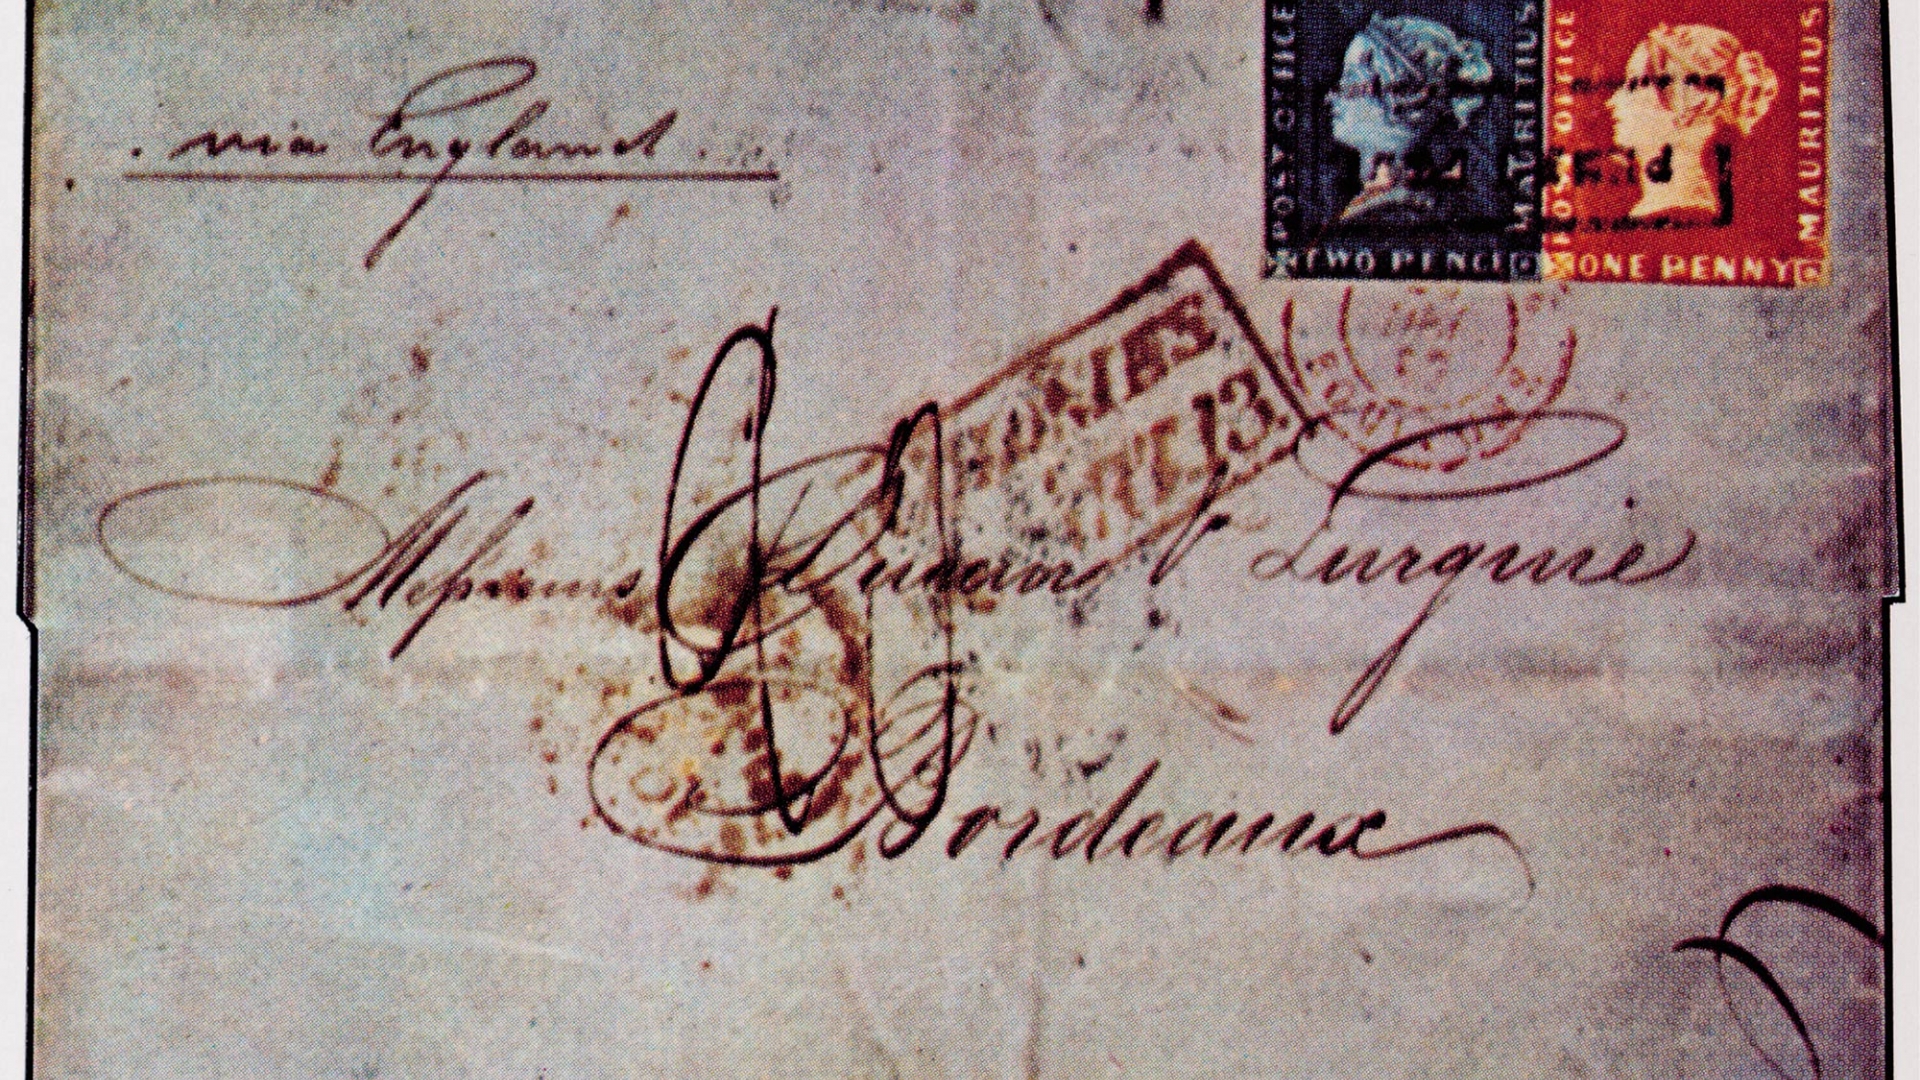 via England
POST OFFICE
MAURITIUS
TWO PENCE
POST OFFICE
MAURITIUS
ONE PENNY
COLONIES
ART. 13.
Messieurs Ducau & Lurguie
Bordeaux